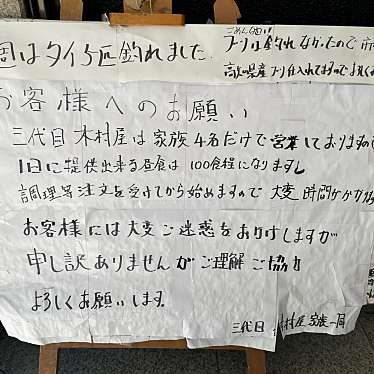 週はタイ5匹釣れました。
ごめんなさい
ブリは釣れなかったので市
高知県産ブリ仕入れてますのでよろしく
お客様へのお願い
三代目木村屋は家族4名だけで営業しておりますので
1日に提供出来る昼食は100食程になりますし
調理写注文を受けてから始めますので大変時間がかかり
お客様には大変ご迷惑をおかけしますが
申し訳ありませんがご理解ご協力
よろしくお願いします。
三代目 木村屋 家族一同